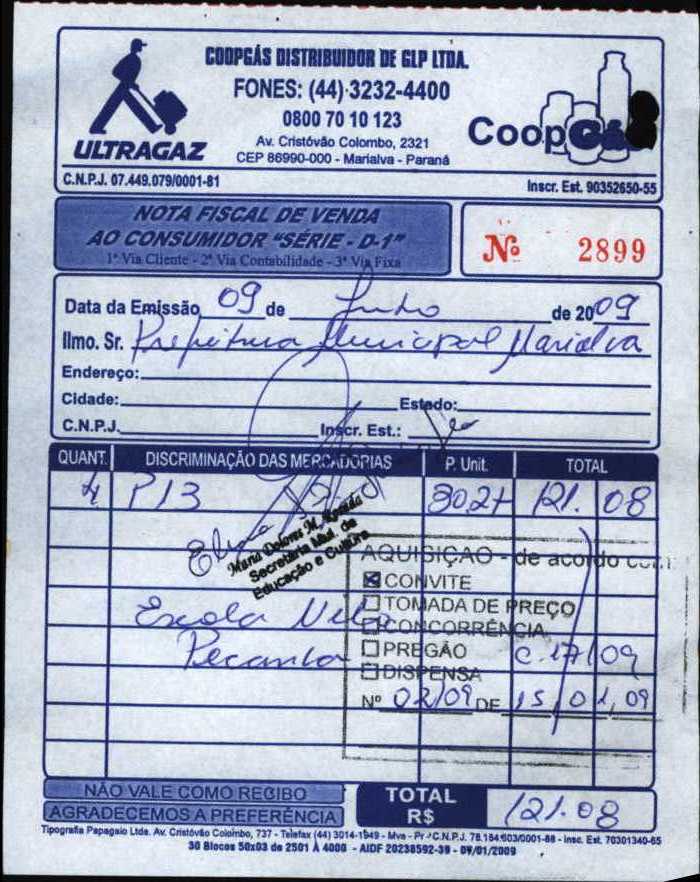 COOPGÁS DISTRIBUIDOR DE GLP LTDA.
FONES: (44) 3232-4400
0800 70 10 123
Av. Cristóvão Colombo, 2321
CEP 86990-000 - Marialva - Paraná
ULTRAGAZ
CoopGás
C.N.P.J. 07.449.079/0001-81
Inscr. Est. 90352650-55
NOTA FISCAL DE VENDA
AO CONSUMIDOR "SÉRIE - D-1"
1ª Via Cliente - 2ª Via Contabilidade - 3ª Via Fixa
Nº 2899
Data da Emissão 09 de Junho de 2009
Ilmo. Sr. Prefeitura Municipal Marialva
Endereço:
Cidade: Estado:
C.N.P.J. Inscr. Est.:
QUANT. DISCRIMINAÇÃO DAS MERCADORIAS P. Unit. TOTAL
4 P13 30.27 121.08
Maria Dolores M.
Secretária Mul. de
Educação e Cultura
AQUISIÇÃO - de acordo com:
CONVITE
TOMADA DE PREÇO
Escola Nilo
CONCORRÊNCIA
Peçanha
PREGÃO C.17/09
DISPENSA
Nº 02/09 DE 15, 01, 09
NÃO VALE COMO RECIBO
AGRADECEMOS A PREFERÊNCIA
TOTAL R$ 121.08
Tipografia Papagaio Ltda. Av. Cristóvão Colombo, 737 - Telefax (44) 3014-1949 - Mva - Pr - C.N.P.J. 78.184.603/0001-88 - Insc. Est. 70301340-65
30 Blocos 50x03 de 2501 À 4000 - AIDF 20238592-39 - 09/01/2009